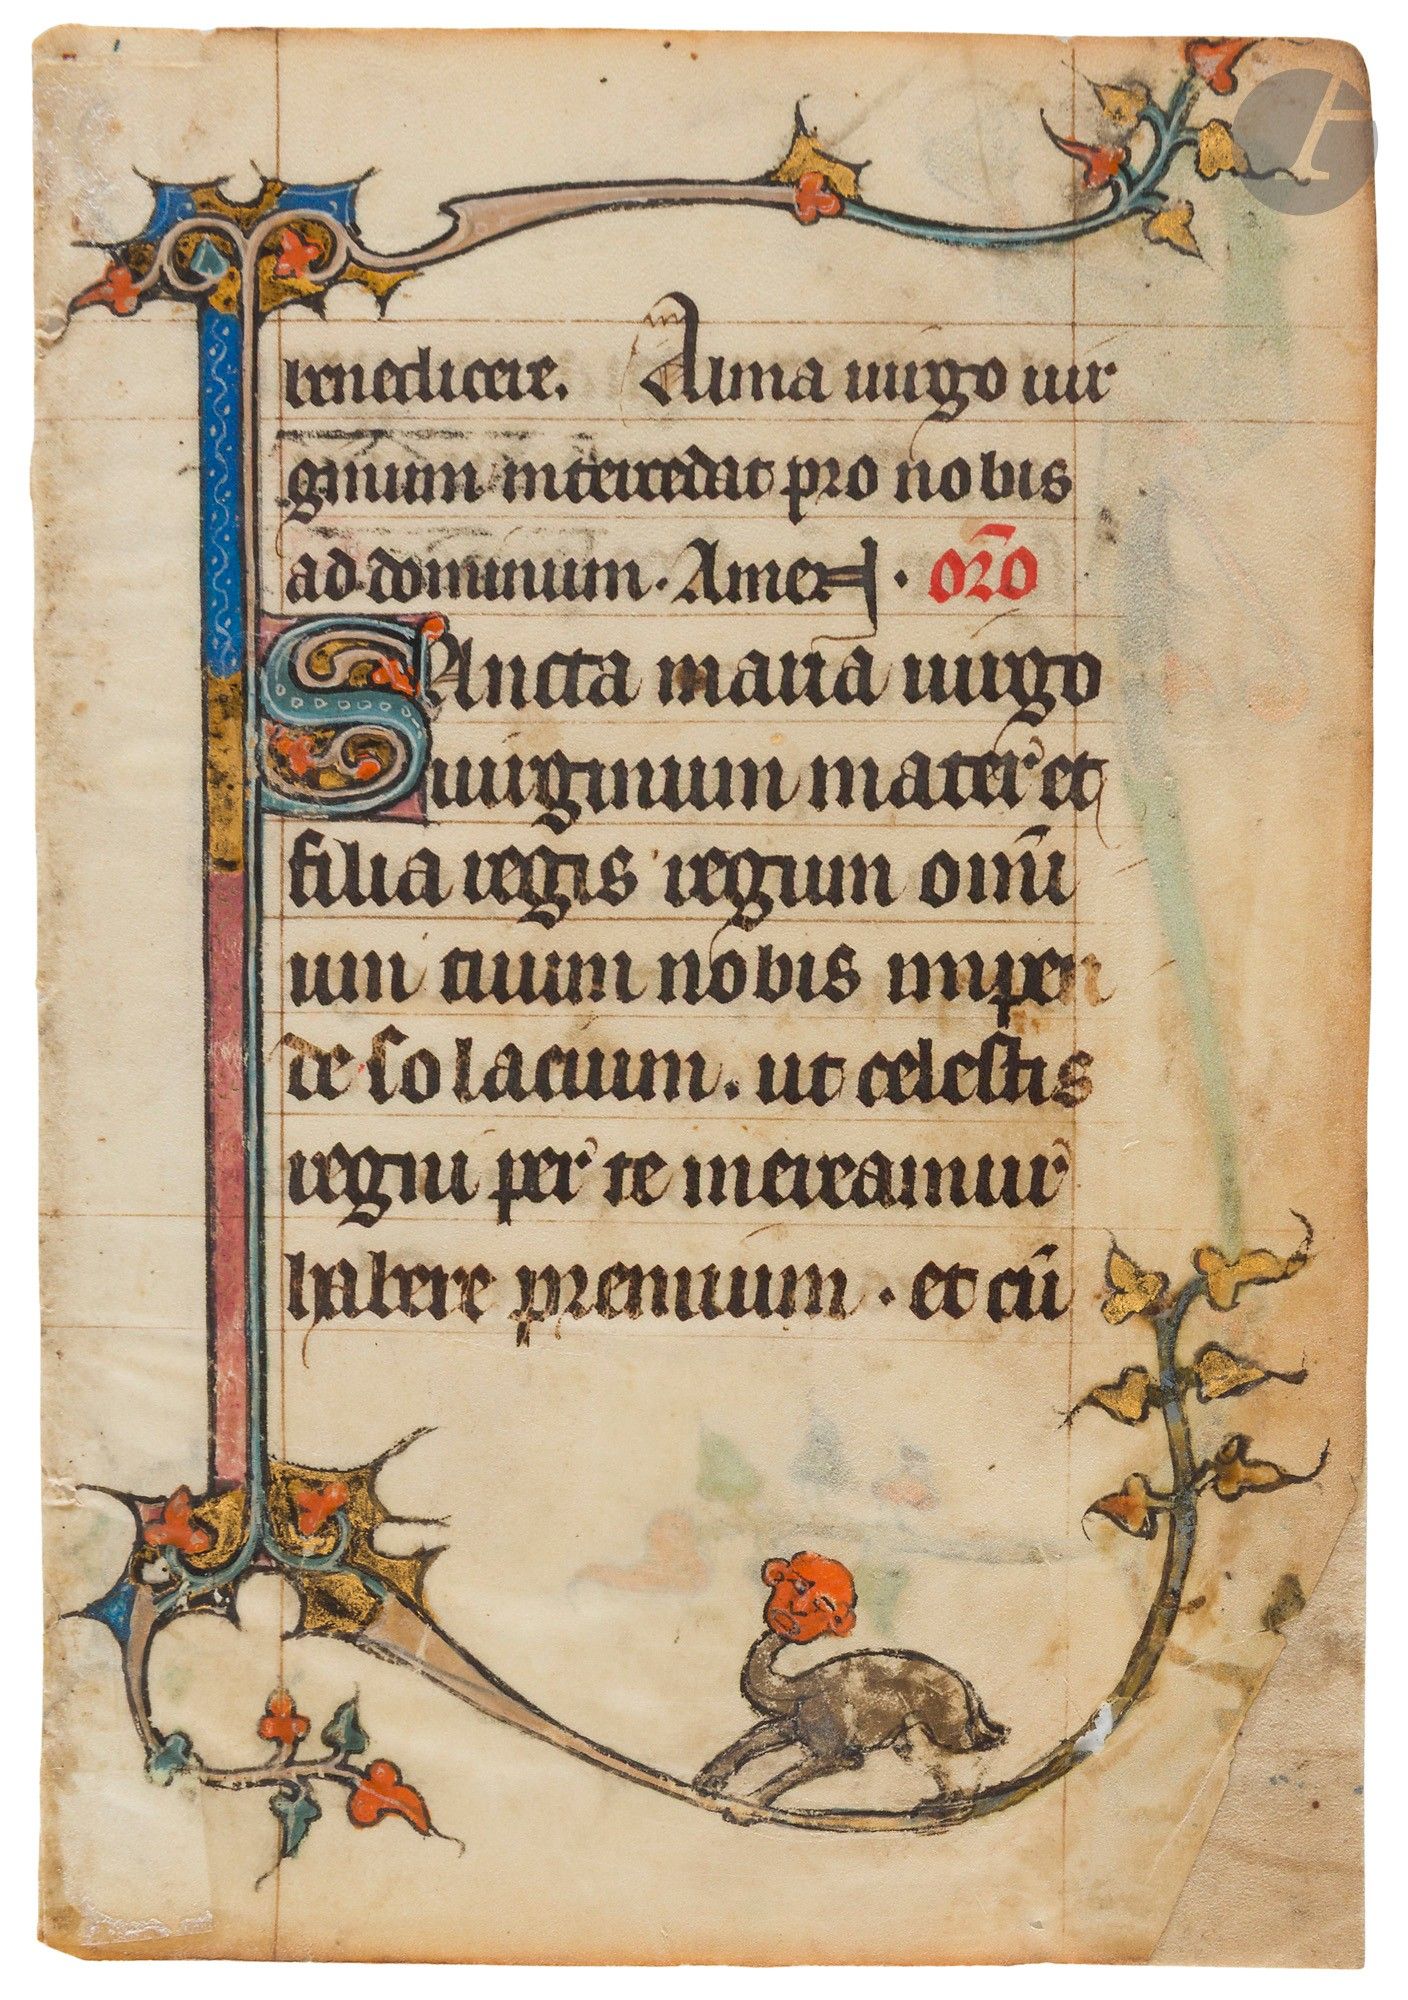 benedicere. Alma uirgo uir
ginum intercedat pro nobis
ad dominum. Amen. or̄o
SAncta maria uirgo
uirginum mater et
filia regis regum omī
um tuum nobis inpen
de solacium. ut celestis
regni per te mereamur
habere premium. et cū